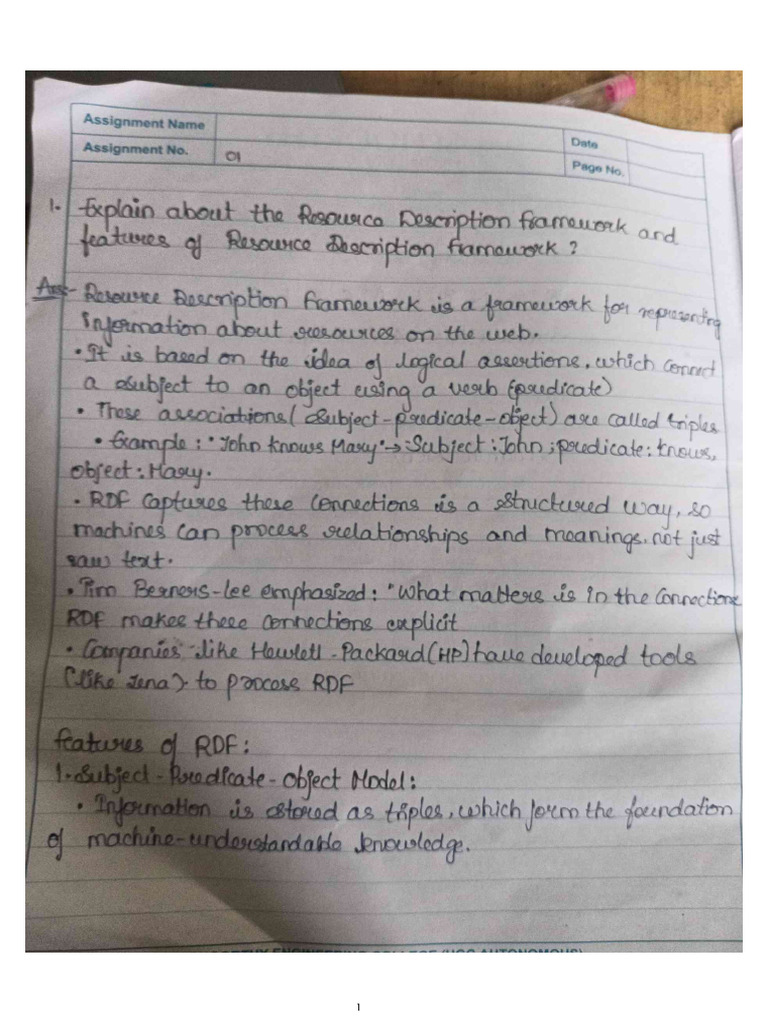 Assignment Name
Assignment No. 01
Date
Page No.
1. Explain about the Resource Description framework and
features of Resource Description framework ?
Ans- Resource Description framework is a framework for representing
information about resources on the web.
• It is based on the idea of logical assertions, which connect
a subject to an object using a verb (predicate)
• These associations (subject-predicate-object) are called triples
• Example : "John knows Mary" → Subject : John ; predicate : knows,
object : Mary.
• RDF captures these connections is a structured way, so
machines can process relationships and meanings, not just
raw text.
• Tim Berners-Lee emphasized : "What matters is in the connections
RDF makes these connections explicit
• Companies like Hewlett-Packard (HP) have developed tools
(like Jena) to process RDF
features of RDF :
1. Subject-Predicate-Object Model :
• Information is stored as triples, which form the foundation
of machine-understandable knowledge.
ENGINEERING COLLEGE (UGC AUTONOMOUS)
1